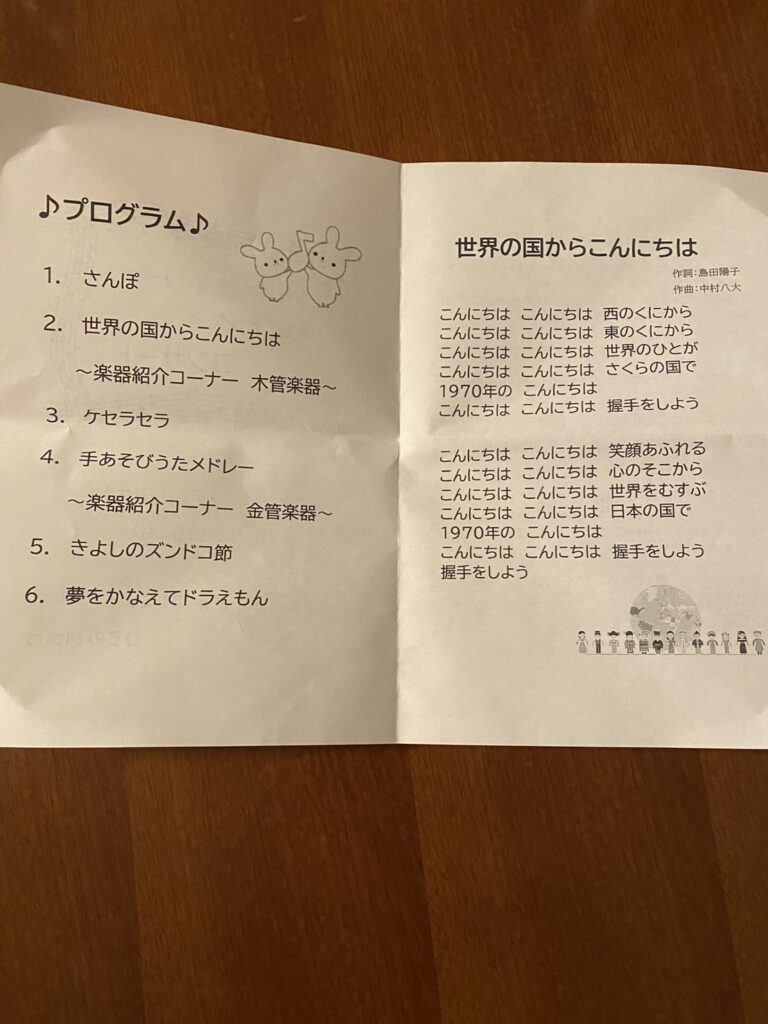 ♪プログラム♪
1. さんぽ
2. 世界の国からこんにちは
～楽器紹介コーナー 木管楽器～
3. ケセラセラ
4. 手あそびうたメドレー
～楽器紹介コーナー 金管楽器～
5. きよしのズンドコ節
6. 夢をかなえてドラえもん
世界の国からこんにちは
作詞：島田陽子
作曲：中村八大
こんにちは こんにちは 西のくにから
こんにちは こんにちは 東のくにから
こんにちは こんにちは 世界のひとが
こんにちは こんにちは さくらの国で
1970年の こんにちは
こんにちは こんにちは 握手をしよう
こんにちは こんにちは 笑顔あふれる
こんにちは こんにちは 心のそこから
こんにちは こんにちは 世界をむすぶ
こんにちは こんにちは 日本の国で
1970年の こんにちは
こんにちは こんにちは 握手をしよう
握手をしよう